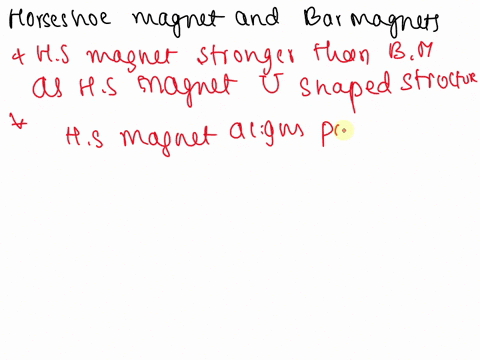 Horseshoe magnet and Bar magnets
* H.S magnet stronger than B.M
as H.S magnet U shaped structure
* H.S magnet aligns po